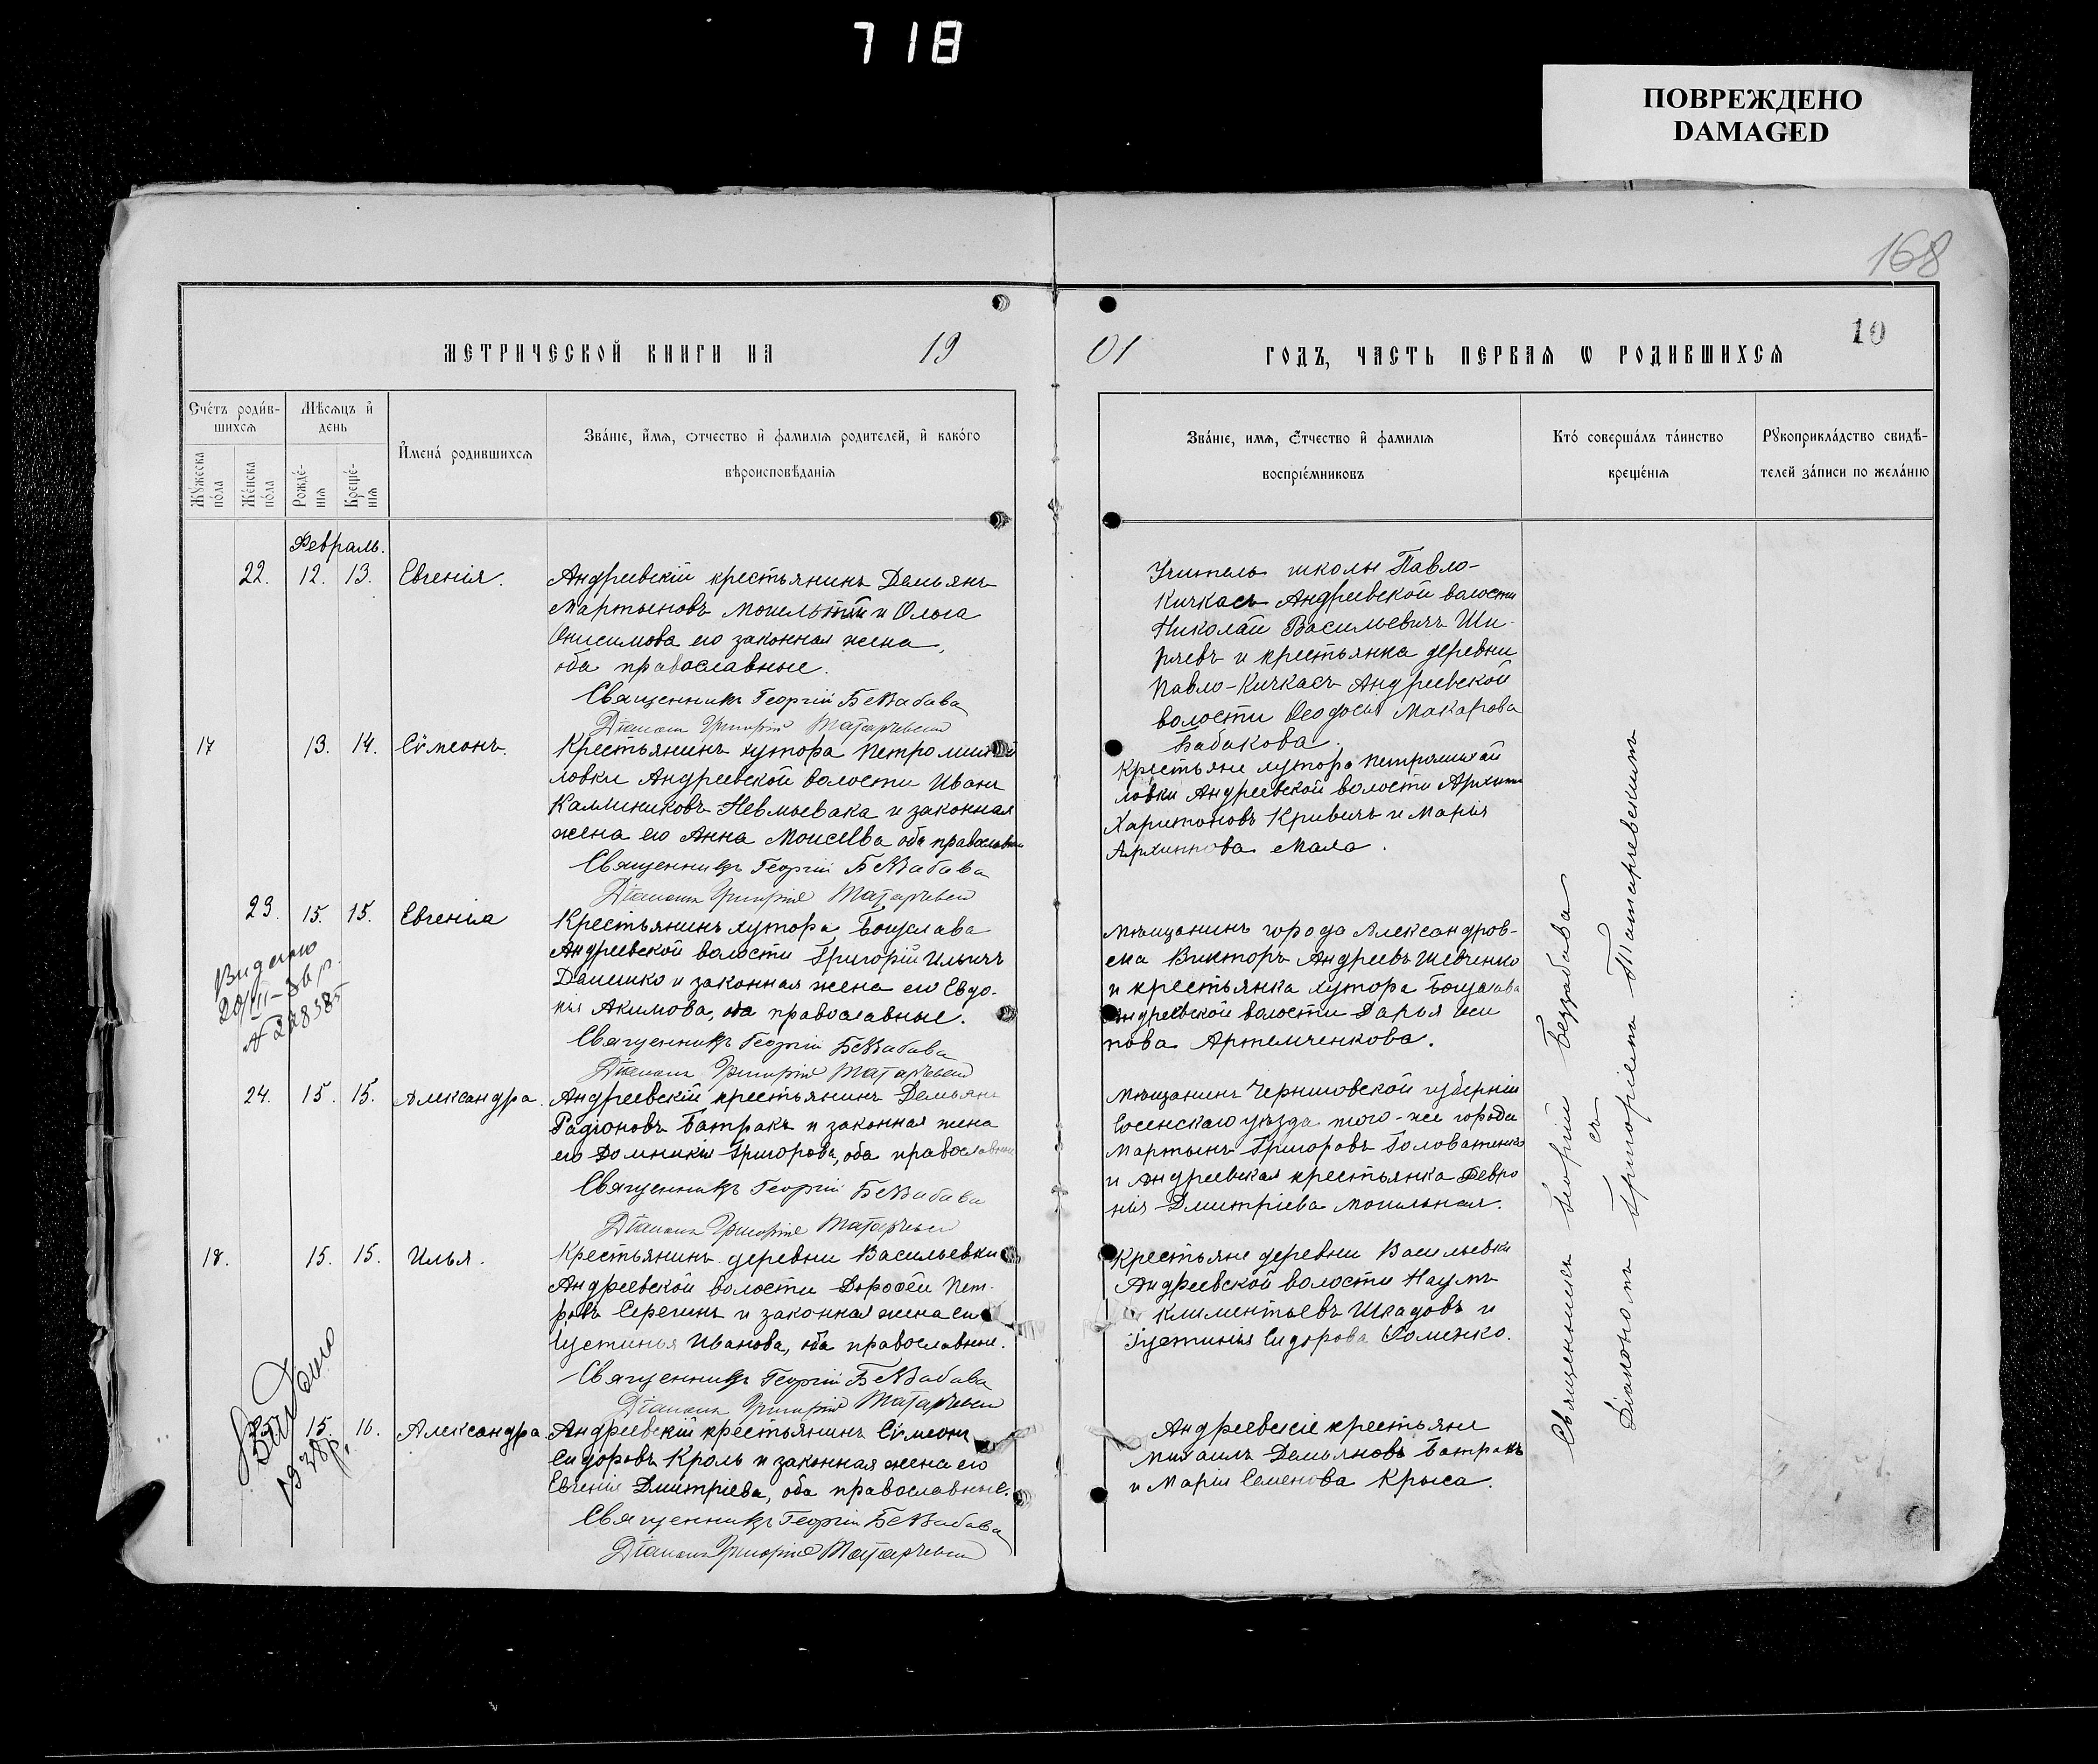 718
ПОВРЕЖДЕНО
DAMAGED
168
10
МЕТРИЧЕСКОЙ КНИГИ НА 19
01 ГОДЪ, ЧАСТЬ ПЕРВАЯ Ѡ РОДИВШИХСЯ
Счетъ родив-
шихся
Мѣсяцъ и
день
Мужеска
пола
Женска
пола
Рожде-
нія
Креще-
нія
Имена родившихся
Званіе, имя, отчество и фамилія родителей, и какого
вѣроисповѣданія
Званіе, имя, отчество и фамилія
воспріемниковъ
Кто совершалъ таинство
крещенія
Рукоприкладство свидѣ-
телей записи по желанію
Февраль.
22. 12. 13. Евгенія.
Андреевскій крестьянинъ Демьянъ
Мартыновъ и Ольга
Онисимова его законная жена,
оба православные.
Священникъ Георгій Беззабава
Діаконъ Григорій Татаревскій
Учитель школы Павло-
Кичкасъ Андреевской волости
Николай Васильевичъ Ши-
ряевъ и крестьянка деревни
Павло-Кичкасъ Андреевской
волости Ѳеодосія Макарова
Бабакова.
17 13. 14. Сѵмеонъ.
Крестьянинъ хутора Петромихай
ловки Андреевской волости Иванъ
Каллиниковъ и законная
жена его Анна Моисеева оба православные
Священникъ Георгій Беззабава
Діаконъ Григорій Татаревскій
Крестьяне хутора Петромихай
ловки Андреевской волости Архипъ
Харитоновъ Кривичъ и Марія
Архиппова Мала.
23. 15. 15. Евгенія
Видано
20/III-36 р.
N 228585
Крестьянинъ хутора Богуслава
Андреевской волости Григорій Ильичъ
Данешко и законная жена его Евдо-
кія Акимова, оба православные.
Священникъ Георгій Беззабава
Діаконъ Григорій Татаревскій
Мѣщанинъ города Александров-
ска Викторъ Андреевъ Шевченко
и крестьянка хутора Богуслава
Андреевской волости Дарья Оси
пова Артемченкова.
24. 15. 15. Александра.
Андреевскій крестьянинъ Демьянъ
Радіоновъ Батракъ и законная жена
его Домникія Григорова, оба православные
Священникъ Георгій Беззабава
Діаконъ Григорій Татаревскій
Мѣщанинъ Черниговской губерніи
уѣзда того-же города
Мартынъ Григоровъ Головатенко
и Андреевская крестьянка Февро
нія Дмитріева Могильная.
18. 15. 15. Илья.
Крестьянинъ деревни Васильевки
Андреевской волости Дорофей Пет-
ровъ Серегинъ и законная жена его
Іустинья Иванова, оба православные.
Священникъ Георгій Беззабава
Діаконъ Григорій Татаревскій
Крестьяне деревни Васильевки
Андреевской волости Наумъ
Климентьевъ Шкадовъ и
Іустинья Сидорова Фоменко.
25. 15. 16. Александра
Видано
1928 р.
Андреевскій крестьянинъ Сѵмеонъ
Сидоровъ Кроль и законная жена его
Евгенія Дмитріева, оба православные.
Священникъ Георгій Беззабава
Діаконъ Григорій Татаревскій
Андреевскіе крестьяне
Михаилъ Демьяновъ Батракъ
и Марія Семенова Крыса.
Священникъ Георгій Беззабава
съ
Діакономъ Григоріемъ Татаревскимъ